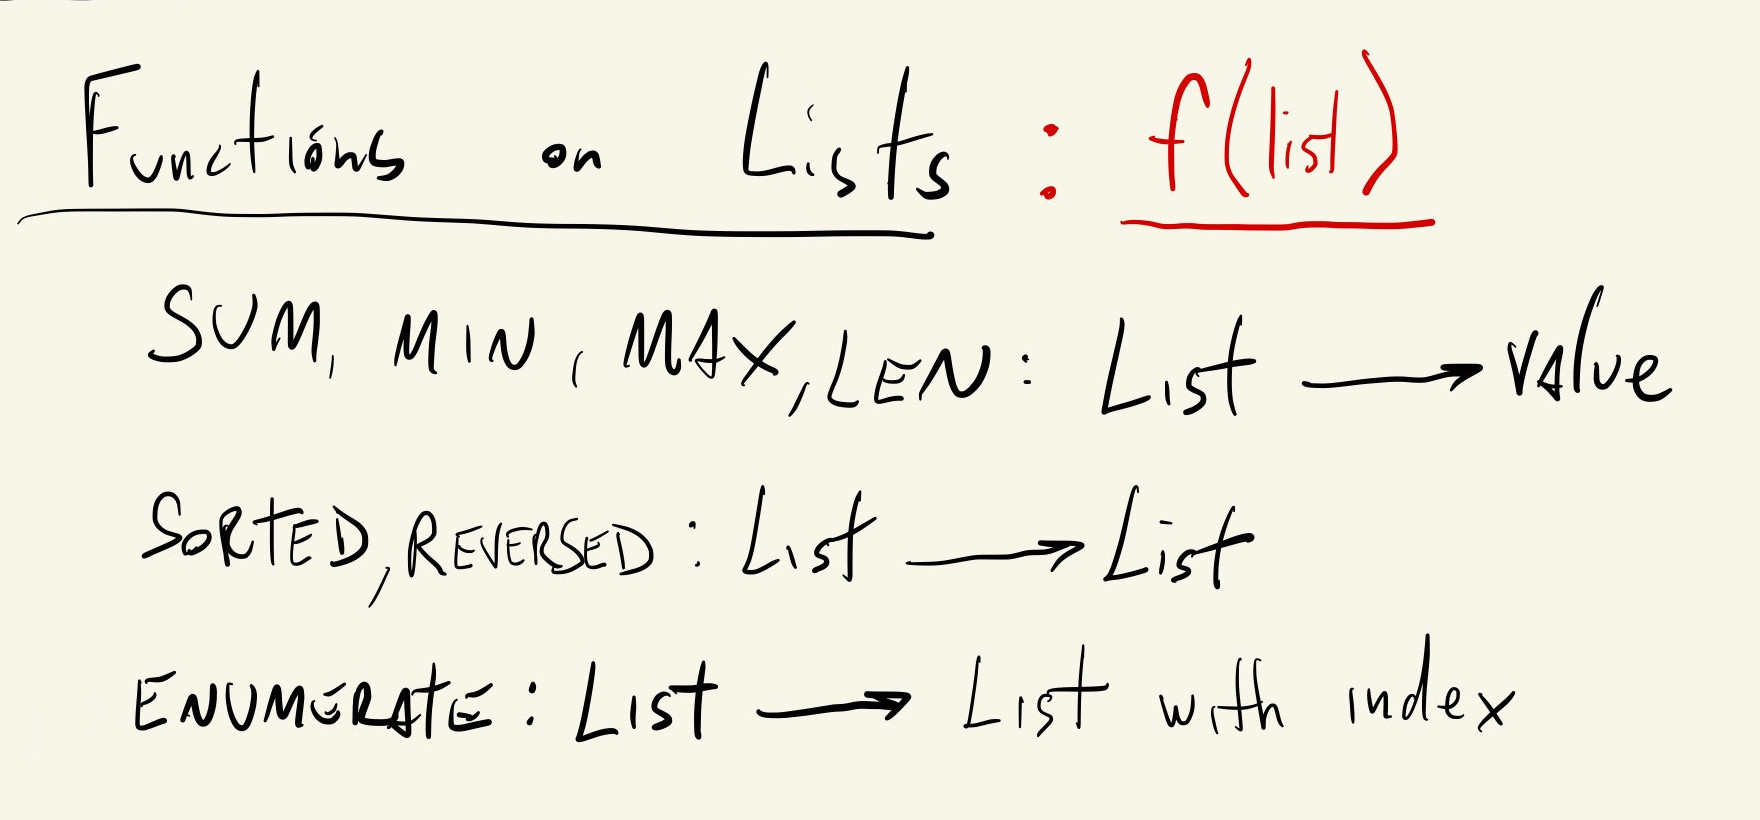 Functions on Lists : f(list)
SUM, MIN, MAX, LEN: List → Value
SORTED, REVERSED: List → List
ENUMERATE: List → List with index